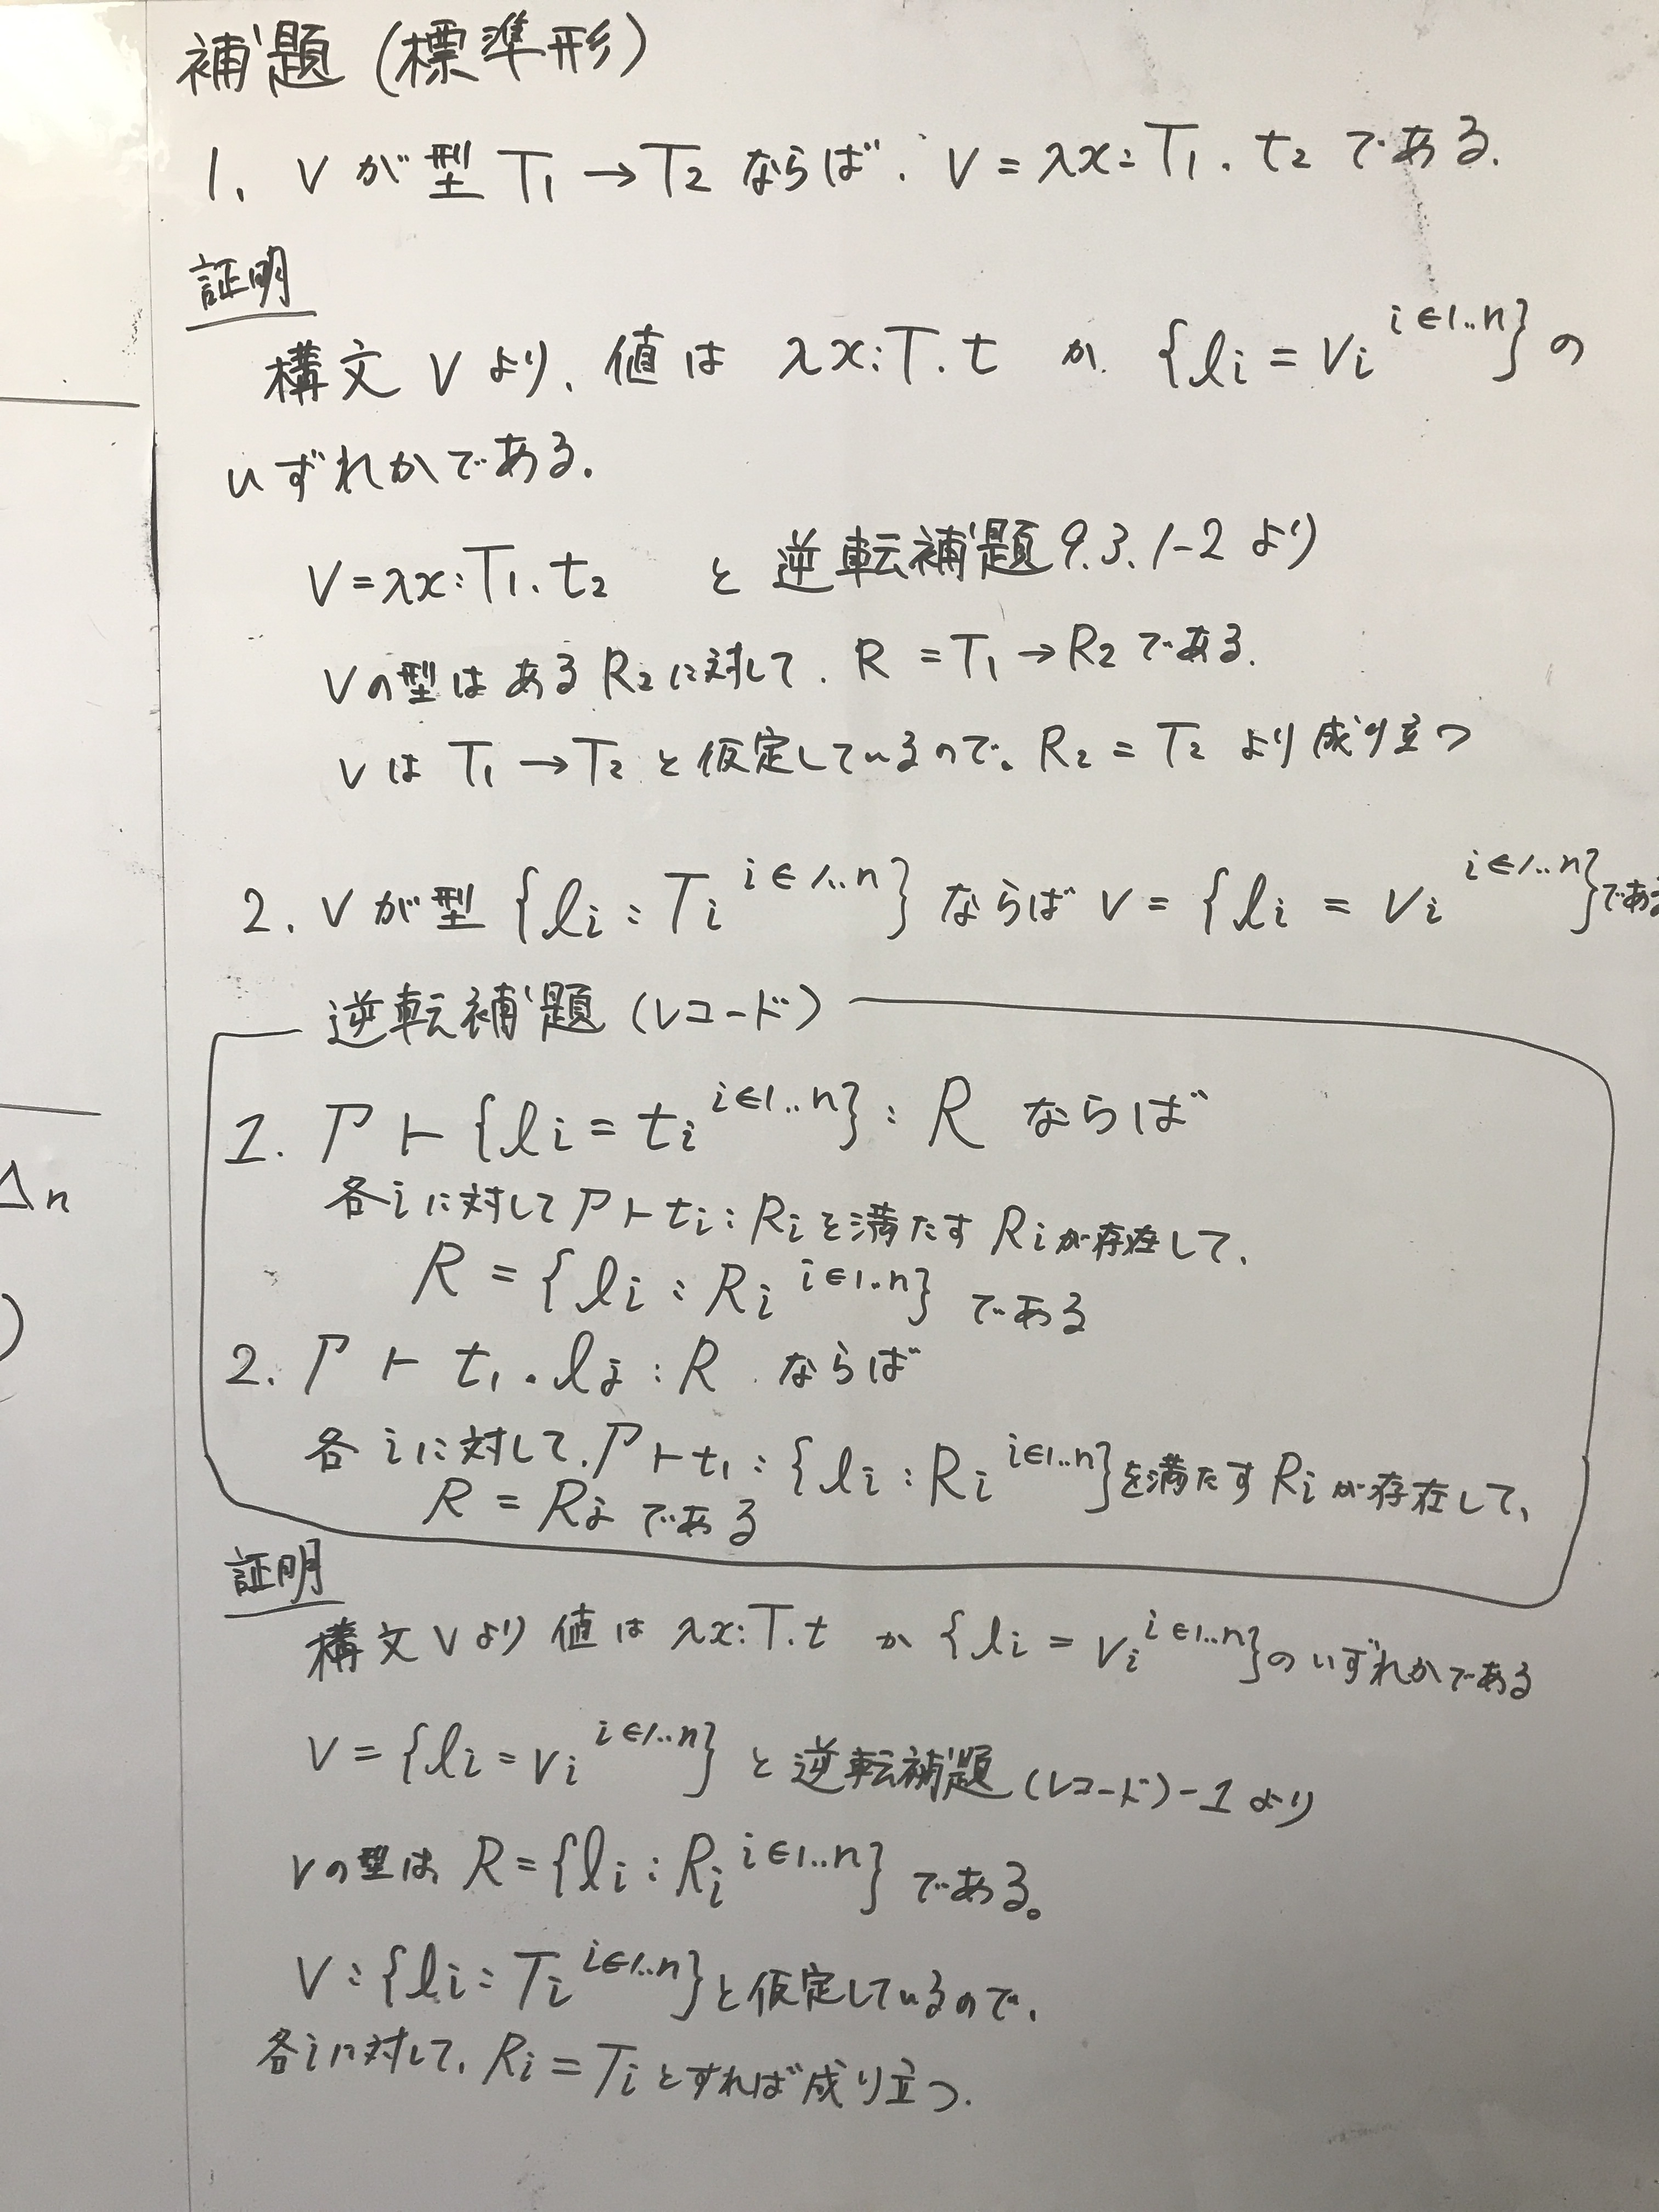 補題 (標準形)
1. V が 型 T₁ → T₂ ならば. V = λx:T₁. t₂ である.
証明
構文 V より、値は λx:T.t か {lᵢ = Vᵢ^{i∈1..n}} の
いずれかである.
V = λx:T₁.t₂ と 逆転補題 9.3.1-2 より
Vの型は ある R₂に対して. R = T₁ → R₂ である.
V は T₁ → T₂ と仮定しているので. R₂ = T₂ より成り立つ
2. V が型 {lᵢ : Tᵢ^{i∈1..n}} ならば V = {lᵢ = Vᵢ^{i∈1..n}} である
逆転補題 (レコード)
1. Γ ⊢ {lᵢ = tᵢ^{i∈1..n}} : R ならば
各iに対して Γ ⊢ tᵢ : Rᵢ を満たす Rᵢが存在して、
R = {lᵢ : Rᵢ^{i∈1..n}} である
2. Γ ⊢ t₁.lⱼ : R ならば
各iに対して. Γ ⊢ t₁ : {lᵢ : Rᵢ^{i∈1..n}} を満たす Rᵢが存在して、
R = Rⱼ である
証明
構文 V より 値は λx:T.t か {lᵢ = Vᵢ^{i∈1..n}} のいずれかである
V = {lᵢ = Vᵢ^{i∈1..n}} と逆転補題 (レコード)-1 より
Vの型は R = {lᵢ : Rᵢ^{i∈1..n}} である。
V : {lᵢ : Tᵢ^{i∈1..n}} と仮定しているので、
各iに対して、Rᵢ = Tᵢ とすれば成り立つ.
Δn